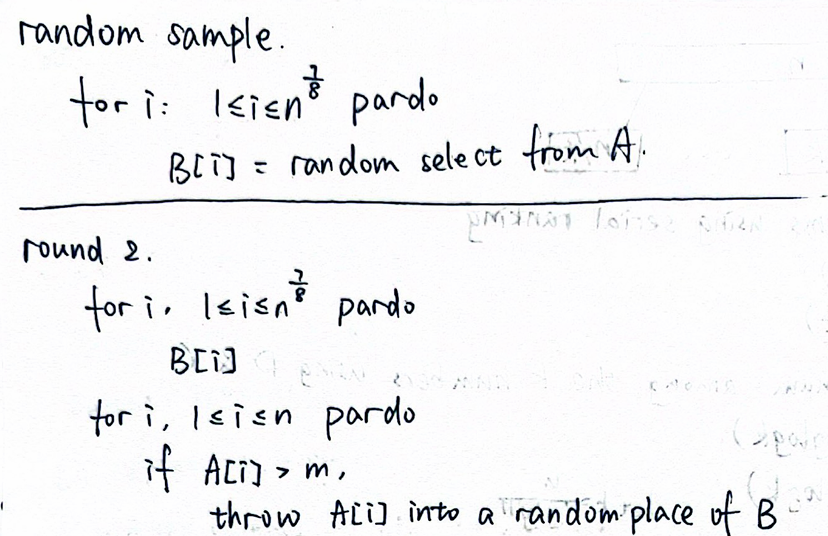 random sample.
for i: 1≤i≤n^{7/8} pardo
B[i] = random select from A.
round 2.
for i, 1≤i≤n^{7/8} pardo
B[i]
for i, 1≤i≤n pardo
if A[i] > m,
throw A[i] into a random place of B